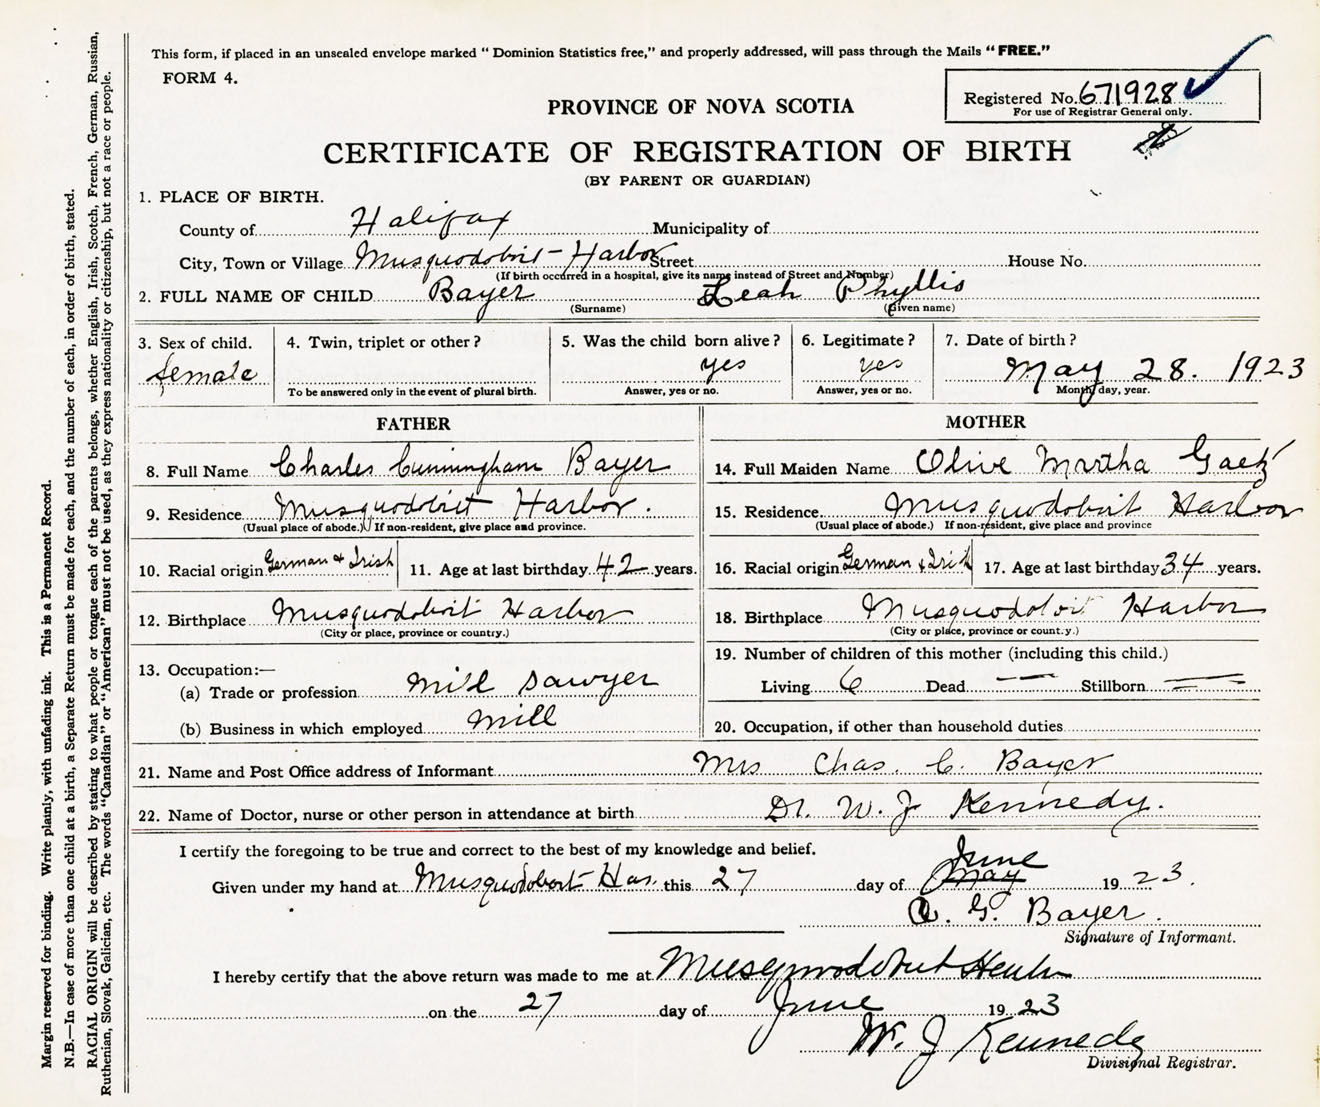 This form, if placed in an unsealed envelope marked "Dominion Statistics free," and properly addressed, will pass through the Mails "FREE."
FORM 4.
Registered No. 671928
For use of Registrar General only.
PROVINCE OF NOVA SCOTIA
CERTIFICATE OF REGISTRATION OF BIRTH
(BY PARENT OR GUARDIAN)
1. PLACE OF BIRTH.
County of Halifax Municipality of
City, Town or Village Musquodoboit-Harbor Street House No.
(If birth occurred in a hospital, give its name instead of Street and Number)
2. FULL NAME OF CHILD Bayer Leah Phyllis
(Surname) (Given name)
3. Sex of child. 4. Twin, triplet or other? 5. Was the child born alive? 6. Legitimate? 7. Date of birth?
female yes yes May 28. 1923
To be answered only in the event of plural birth. Answer, yes or no. Answer, yes or no. Month, day, year.
FATHER
8. Full Name Charles Cunningham Bayer
9. Residence Musquodoboit Harbor.
(Usual place of abode.) If non-resident, give place and province.
10. Racial origin German & Irish 11. Age at last birthday 42 years.
12. Birthplace Musquodoboit Harbor
(City or place, province or country.)
13. Occupation:—
(a) Trade or profession mill sawyer
(b) Business in which employed mill
MOTHER
14. Full Maiden Name Olive Martha Gaetz
15. Residence Musquodoboit Harbor
(Usual place of abode.) If non-resident, give place and province
16. Racial origin German & Irish 17. Age at last birthday 34 years.
18. Birthplace Musquodoboit Harbor
(City or place, province or country.)
19. Number of children of this mother (including this child.)
Living 6 Dead — Stillborn —
20. Occupation, if other than household duties
21. Name and Post Office address of Informant Mrs Chas. C. Bayer
22. Name of Doctor, nurse or other person in attendance at birth Dr. W. J Kennedy.
I certify the foregoing to be true and correct to the best of my knowledge and belief.
June
Given under my hand at Musquodoboit Har. this 27 day of May 1923.
C. G. Bayer.
Signature of Informant.
I hereby certify that the above return was made to me at Musquodoboit
on the 27 day of June 1923
W. J Kennedy
Divisional Registrar.
Margin reserved for binding. Write plainly, with unfading ink. This is a Permanent Record.
N.B.—In case of more than one child at a birth, a Separate Return must be made for each, and the number of each, in order of birth, stated.
RACIAL ORIGIN will be described by stating to what people or tongue each of the parents belongs, whether English, Irish, Scotch, French, German, Russian,
Ruthenian, Slovak, Galician, etc. The words "Canadian" or "American" must not be used, as they express nationality or citizenship, but not a race or people.